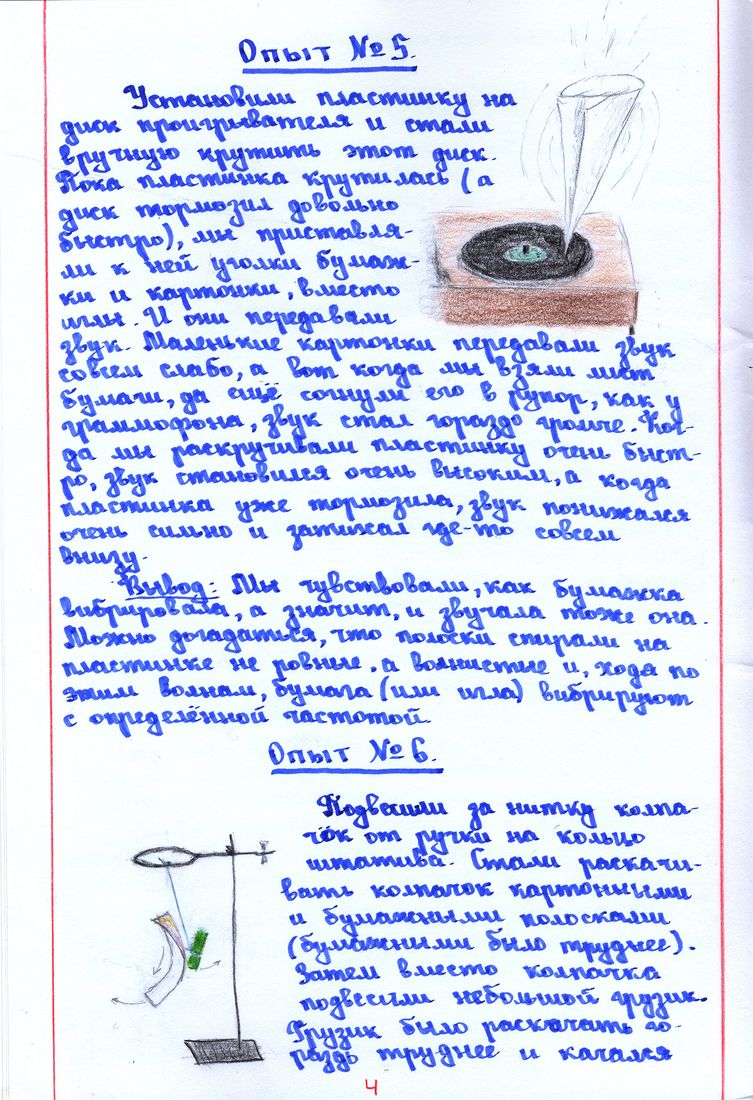 Опыт №5.
Установили пластинку на
диск проигрывателя и стали
вручную крутить этот диск.
Пока пластинка крутилась (а
диск тормозил довольно
быстро), мы приставля-
ли к ней уголки бумаж-
ки и картонки, вместо
иглы. И они передавали
звук. Маленькие картонки передавали звук
совсем слабо, а вот когда мы взяли лист
бумаги, да ещё согнули его в рупор, как у
граммофона, звук стал гораздо громче. Ког-
да мы раскручивали пластинку очень быст-
ро, звук становился очень высоким, а когда
пластинка уже тормозила, звук понижался
очень сильно и затихал где-то совсем
внизу.
Вывод: Мы чувствовали, как бумажка
вибрировала, а значит, и звучала тоже она.
Можно догадаться, что полоски спирали на
пластинке не ровные, а волнистые и, ходя по
этим волнам, бумага (или игла) вибрируют
с определённой частотой.
Опыт №6.
Подвесили за нитку колпа-
чок от ручки на кольцо
штатива. Стали раскачи-
вать колпачок картонными
и бумажными полосками
(бумажными было труднее).
Затем вместо колпачка
подвесили небольшой грузик.
Грузик было раскачать го-
раздь труднее и качался
4